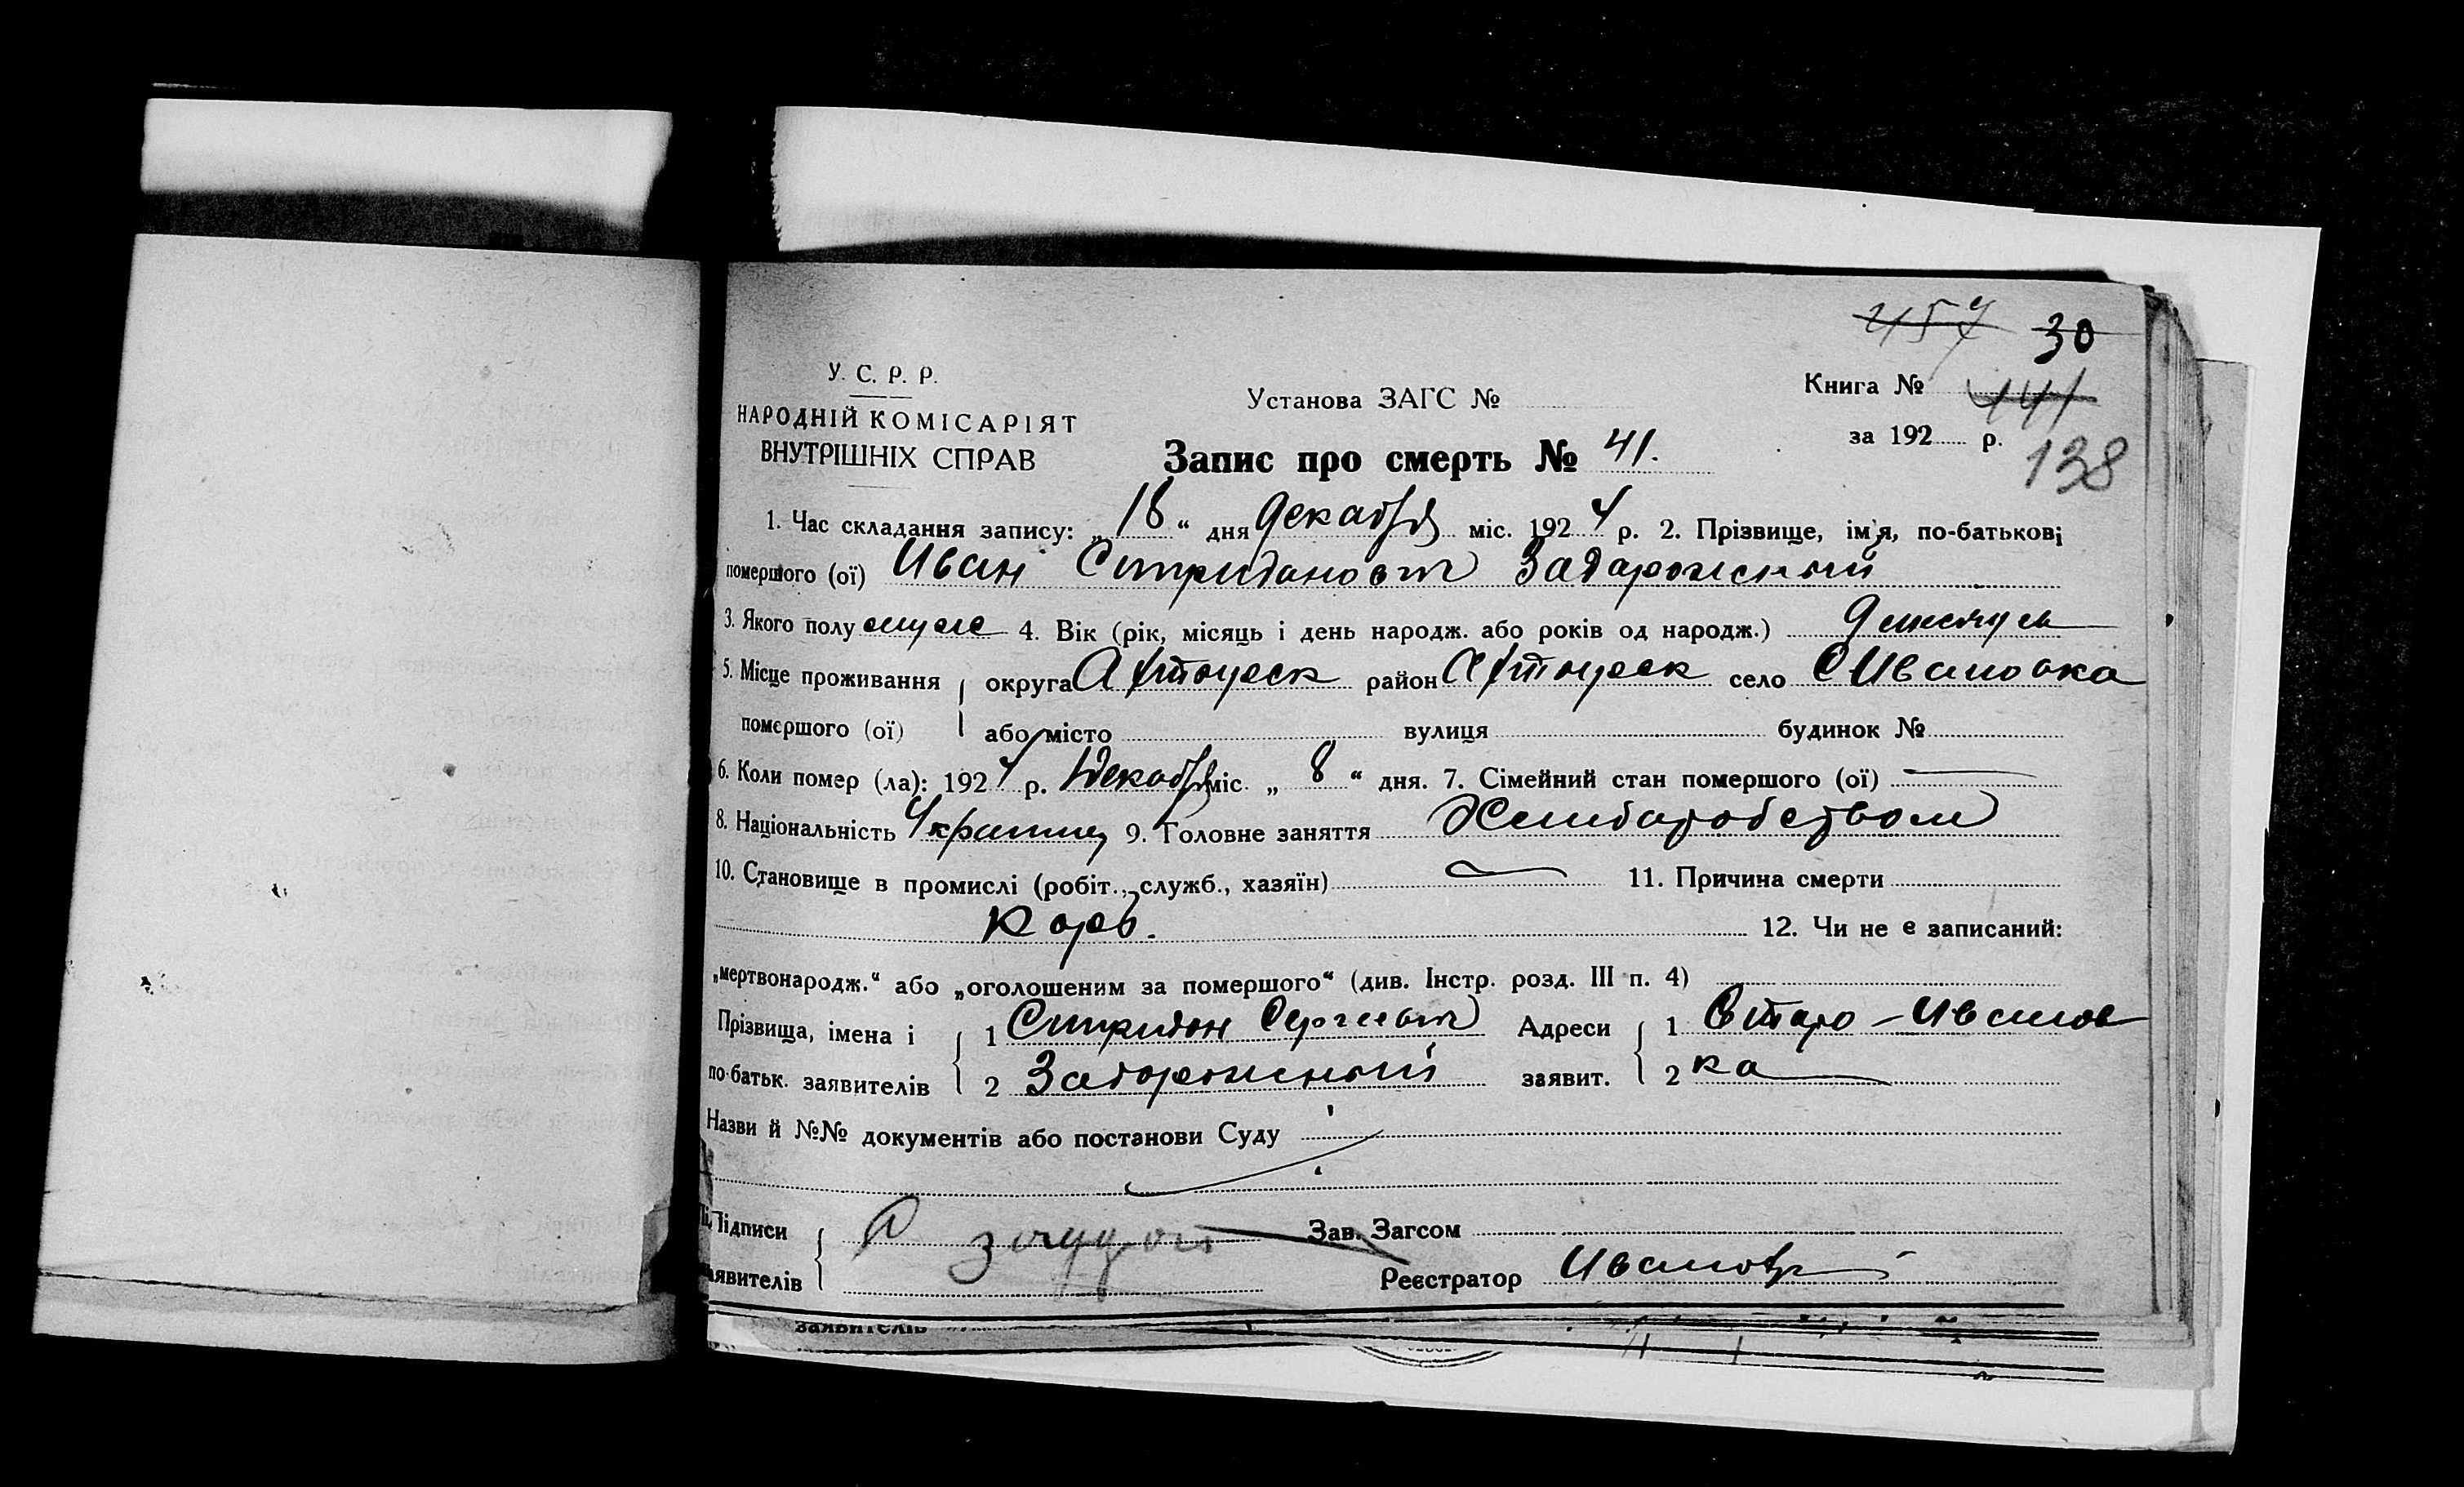 457 30
У. С. Р. Р.
НАРОДНІЙ КОМІСАРІЯТ
ВНУТРІШНІХ СПРАВ
Установа ЗАГС №
Книга № 141
за 192 р.
138
Запис про смерть № 41.
1. Час складання запису: „18“ дня Декабря міс. 1924 р. 2. Прізвище, ім'я, по-батькові
помершого (ої) Иван Спиридоновт Задорожный
3. Якого полу муже 4. Вік (рік, місяць і день народж. або років од народж.) 9 месяцев
5. Місце проживання округа район село СИвановка
помершого (ої) або місто вулиця будинок №
6. Коли помер (ла): 1924 р. Декабря міс. „8“ дня. 7. Сімейний стан помершого (ої)
8. Національність Украинц 9. Головне заняття
10. Становище в промислі (робіт., служб., хазяїн) 11. Причина смерти
Корь. 12. Чи не є записаний:
„мертвонародж.“ або „оголошеним за помершого“ (див. Інстр. розд. III п. 4)
Прізвища, імена і 1 Спиридон Сергеевт Адреси 1 Старо-Иванов
по-батьк. заявителів 2 Задорожный заявит. 2 ка
Назви й №№ документів або постанови Суду
Підписи Зав. Загсом
заявителів Реєстратор
заявителів